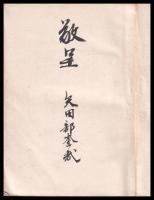 敬呈
矢田部